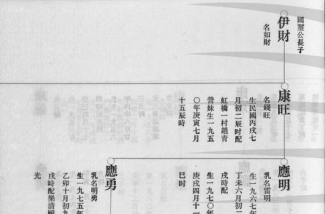 國璽公長子
伊財
名如財
康旺
名綫旺
生民國丙戌七
月初二辰时配
虹橋一村趙青
營妹生一九五
〇年庚寅七月
十五辰時
應明
乳名雷明
生一九六七年
丁未六月初二
戌時配
生一九七〇年
庚戌四月十一
巳时
應勇
乳名明勇
生一九七五年
乙卯十月初九
戌時配樂清
光